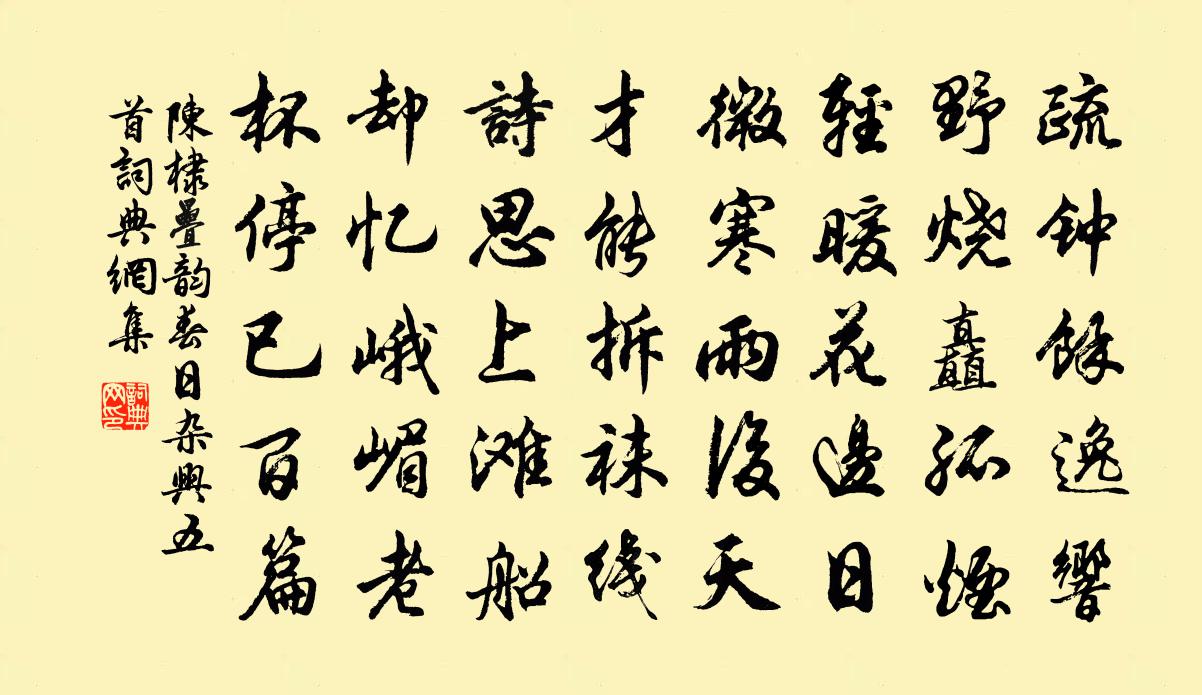 疏钟馀逸響
野烧矗孤煙
輕暖花邊日
微寒雨後天
才能拆袜线
詩思上滩船
却忆峨嵋老
杯停已百篇
陳棣疊韵春日杂興五
首詞典網集
詞典网印